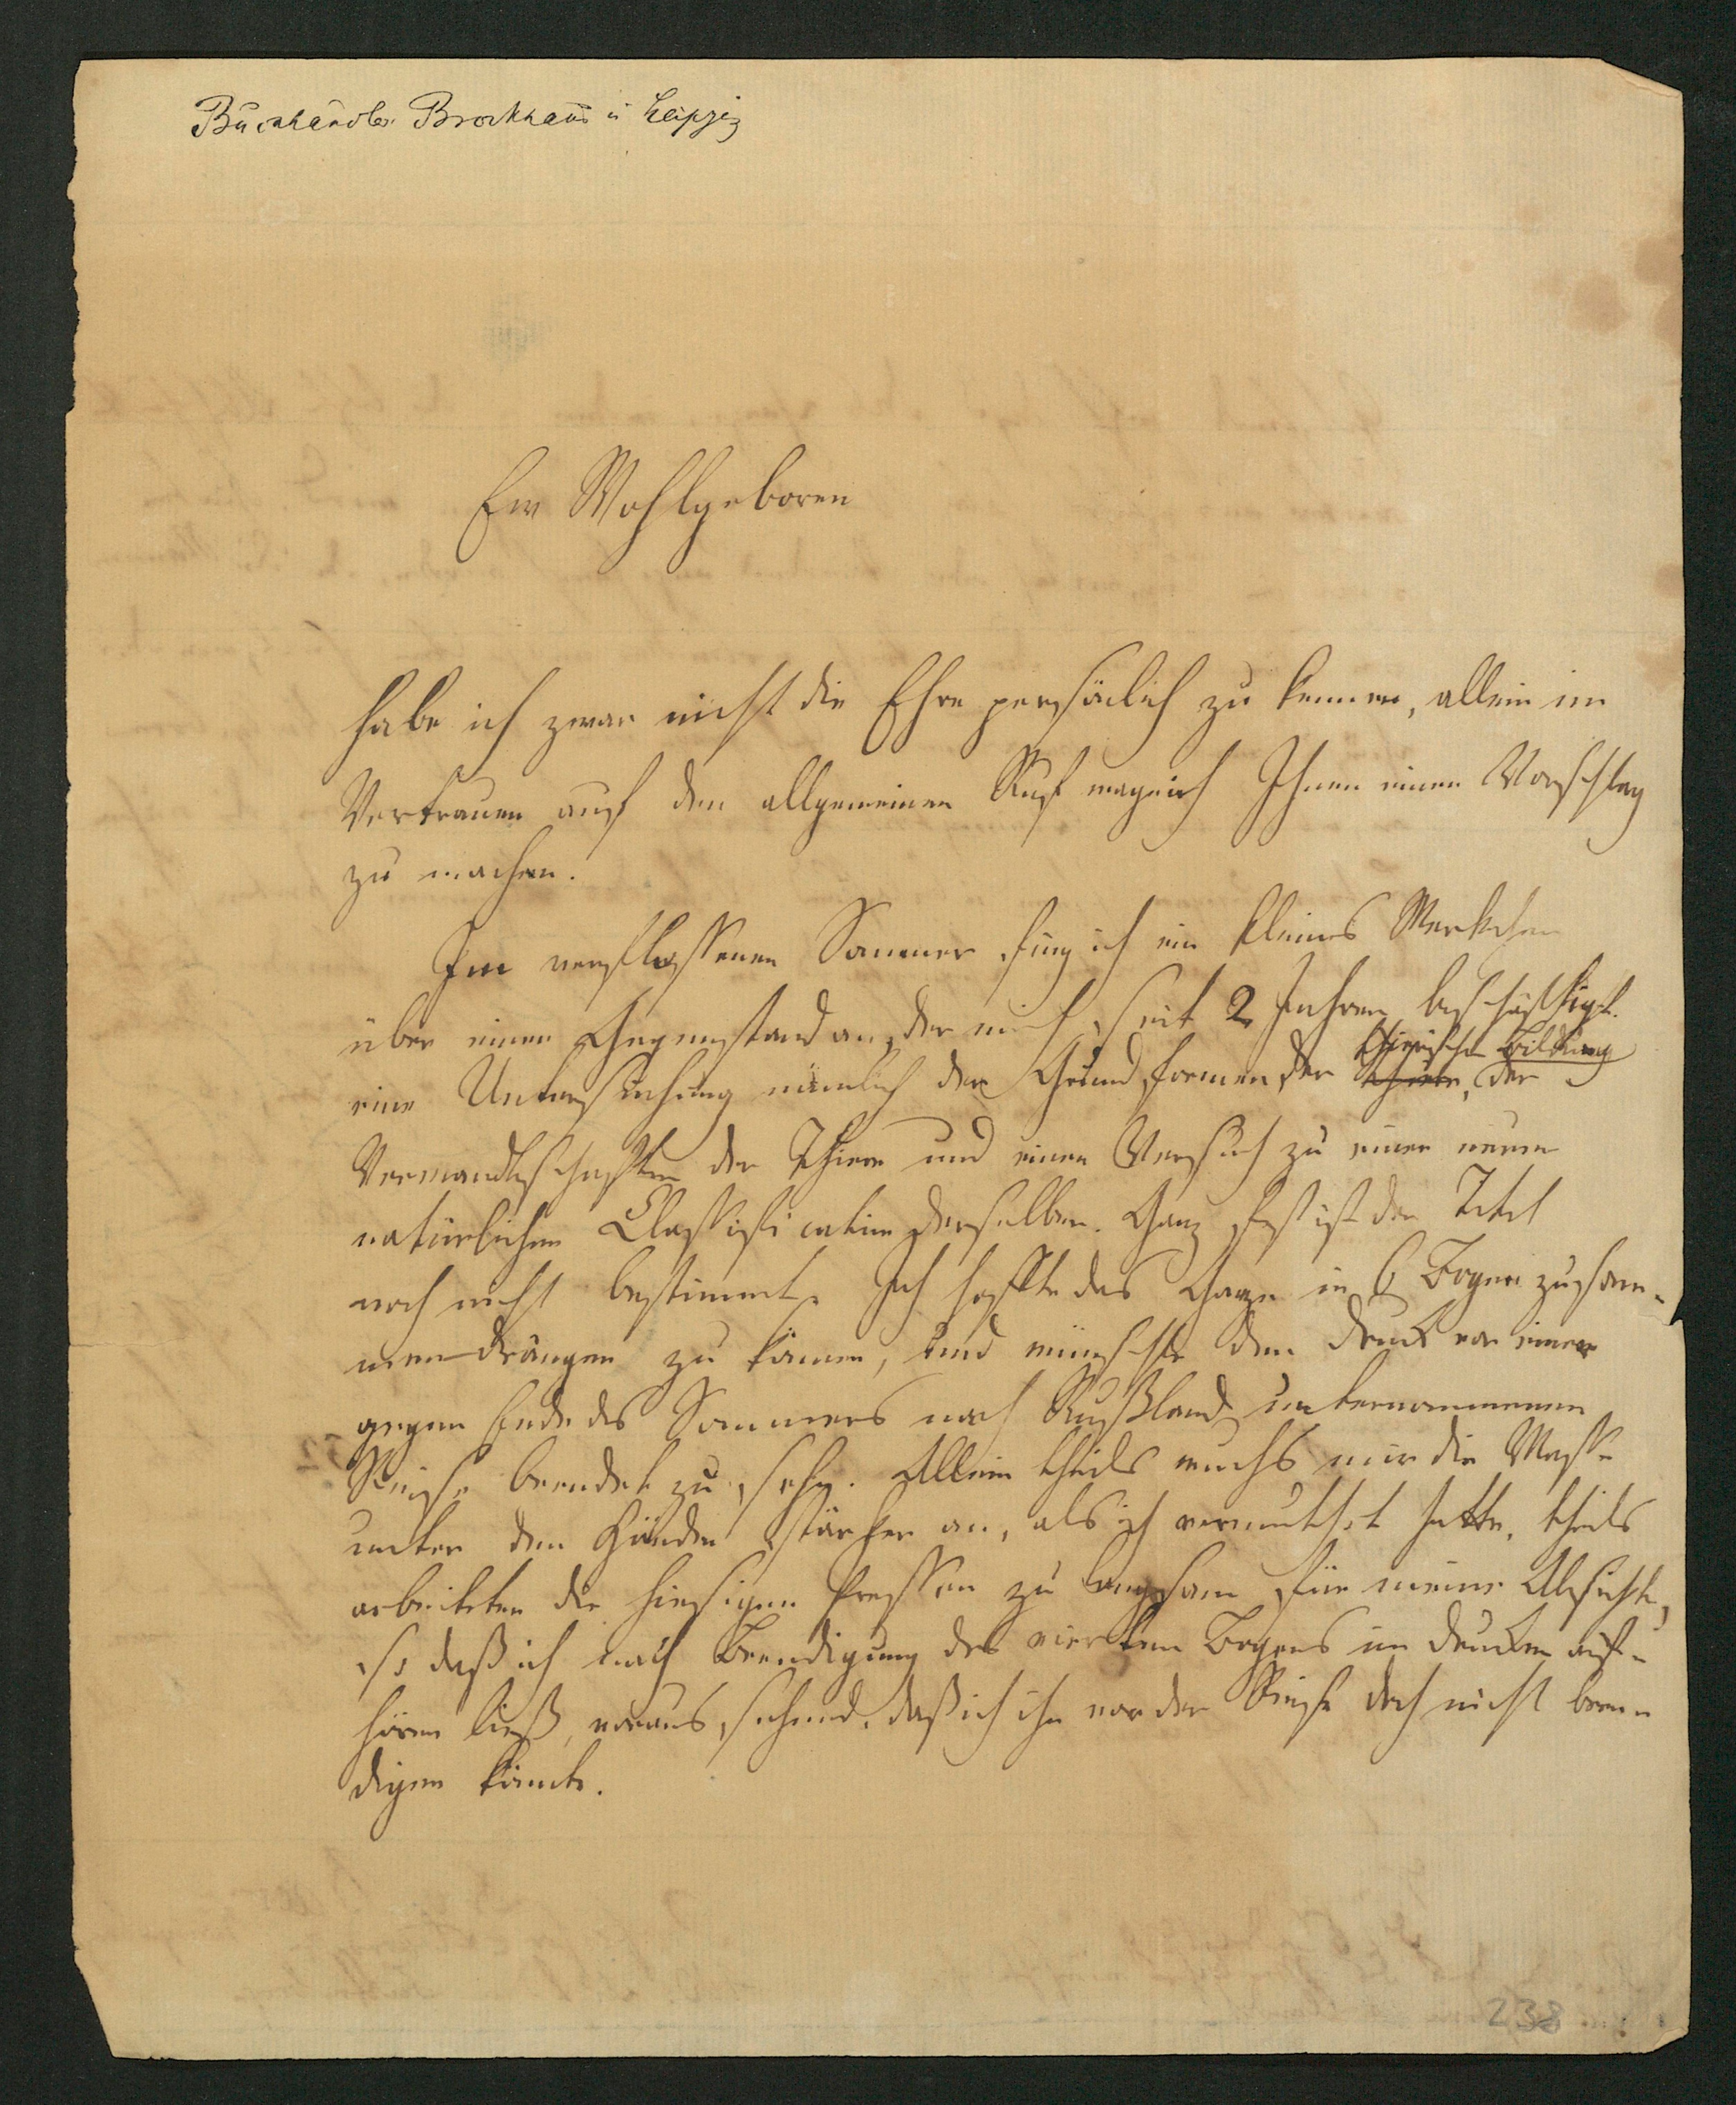 Buchhändler Brockhaus in Leipzig
Ew Wohlgeboren
habe ich zwar nicht die Ehre persönlich zu kennen, allein im
Vertrauen auf den allgemeinen Ruf wage ich Ihnen einen Vorschlag
zu machen.
Im verflossenen Sommer fing ich ein kleines Werkchen
über einen Gegenstand an, der mich seit 2 Jahren beschäftigt.
thierischen Bildung
eine Untersuchung nämlich der Grundformen der Thiere, der
Verwandtschaften der Thiere und einen Versuch zu einer neuen
natürlichen Classification derselben. Ganz fest ist der Titel
noch nicht bestimmt. Ich hoffte das Ganze in 6 Bogen zusam-
mendrängen zu können, und wünschte den Druck vor einer
gegen Ende des Sommers nach Rußland unternommenen
Reise beendet zu sehn. Allein theils wuchs mir die Masse
unter den Händen stärker an, als ich vermuthet hatte, theils
arbeiteten die hiesigen Pressen zu langsam für meine Absicht,
so daß ich nach Beendigung des vierten Bogens im Drucken auf-
hören ließ, voraus sehend, daß ich ihn vor der Reise doch nicht been-
digen könnte.
238